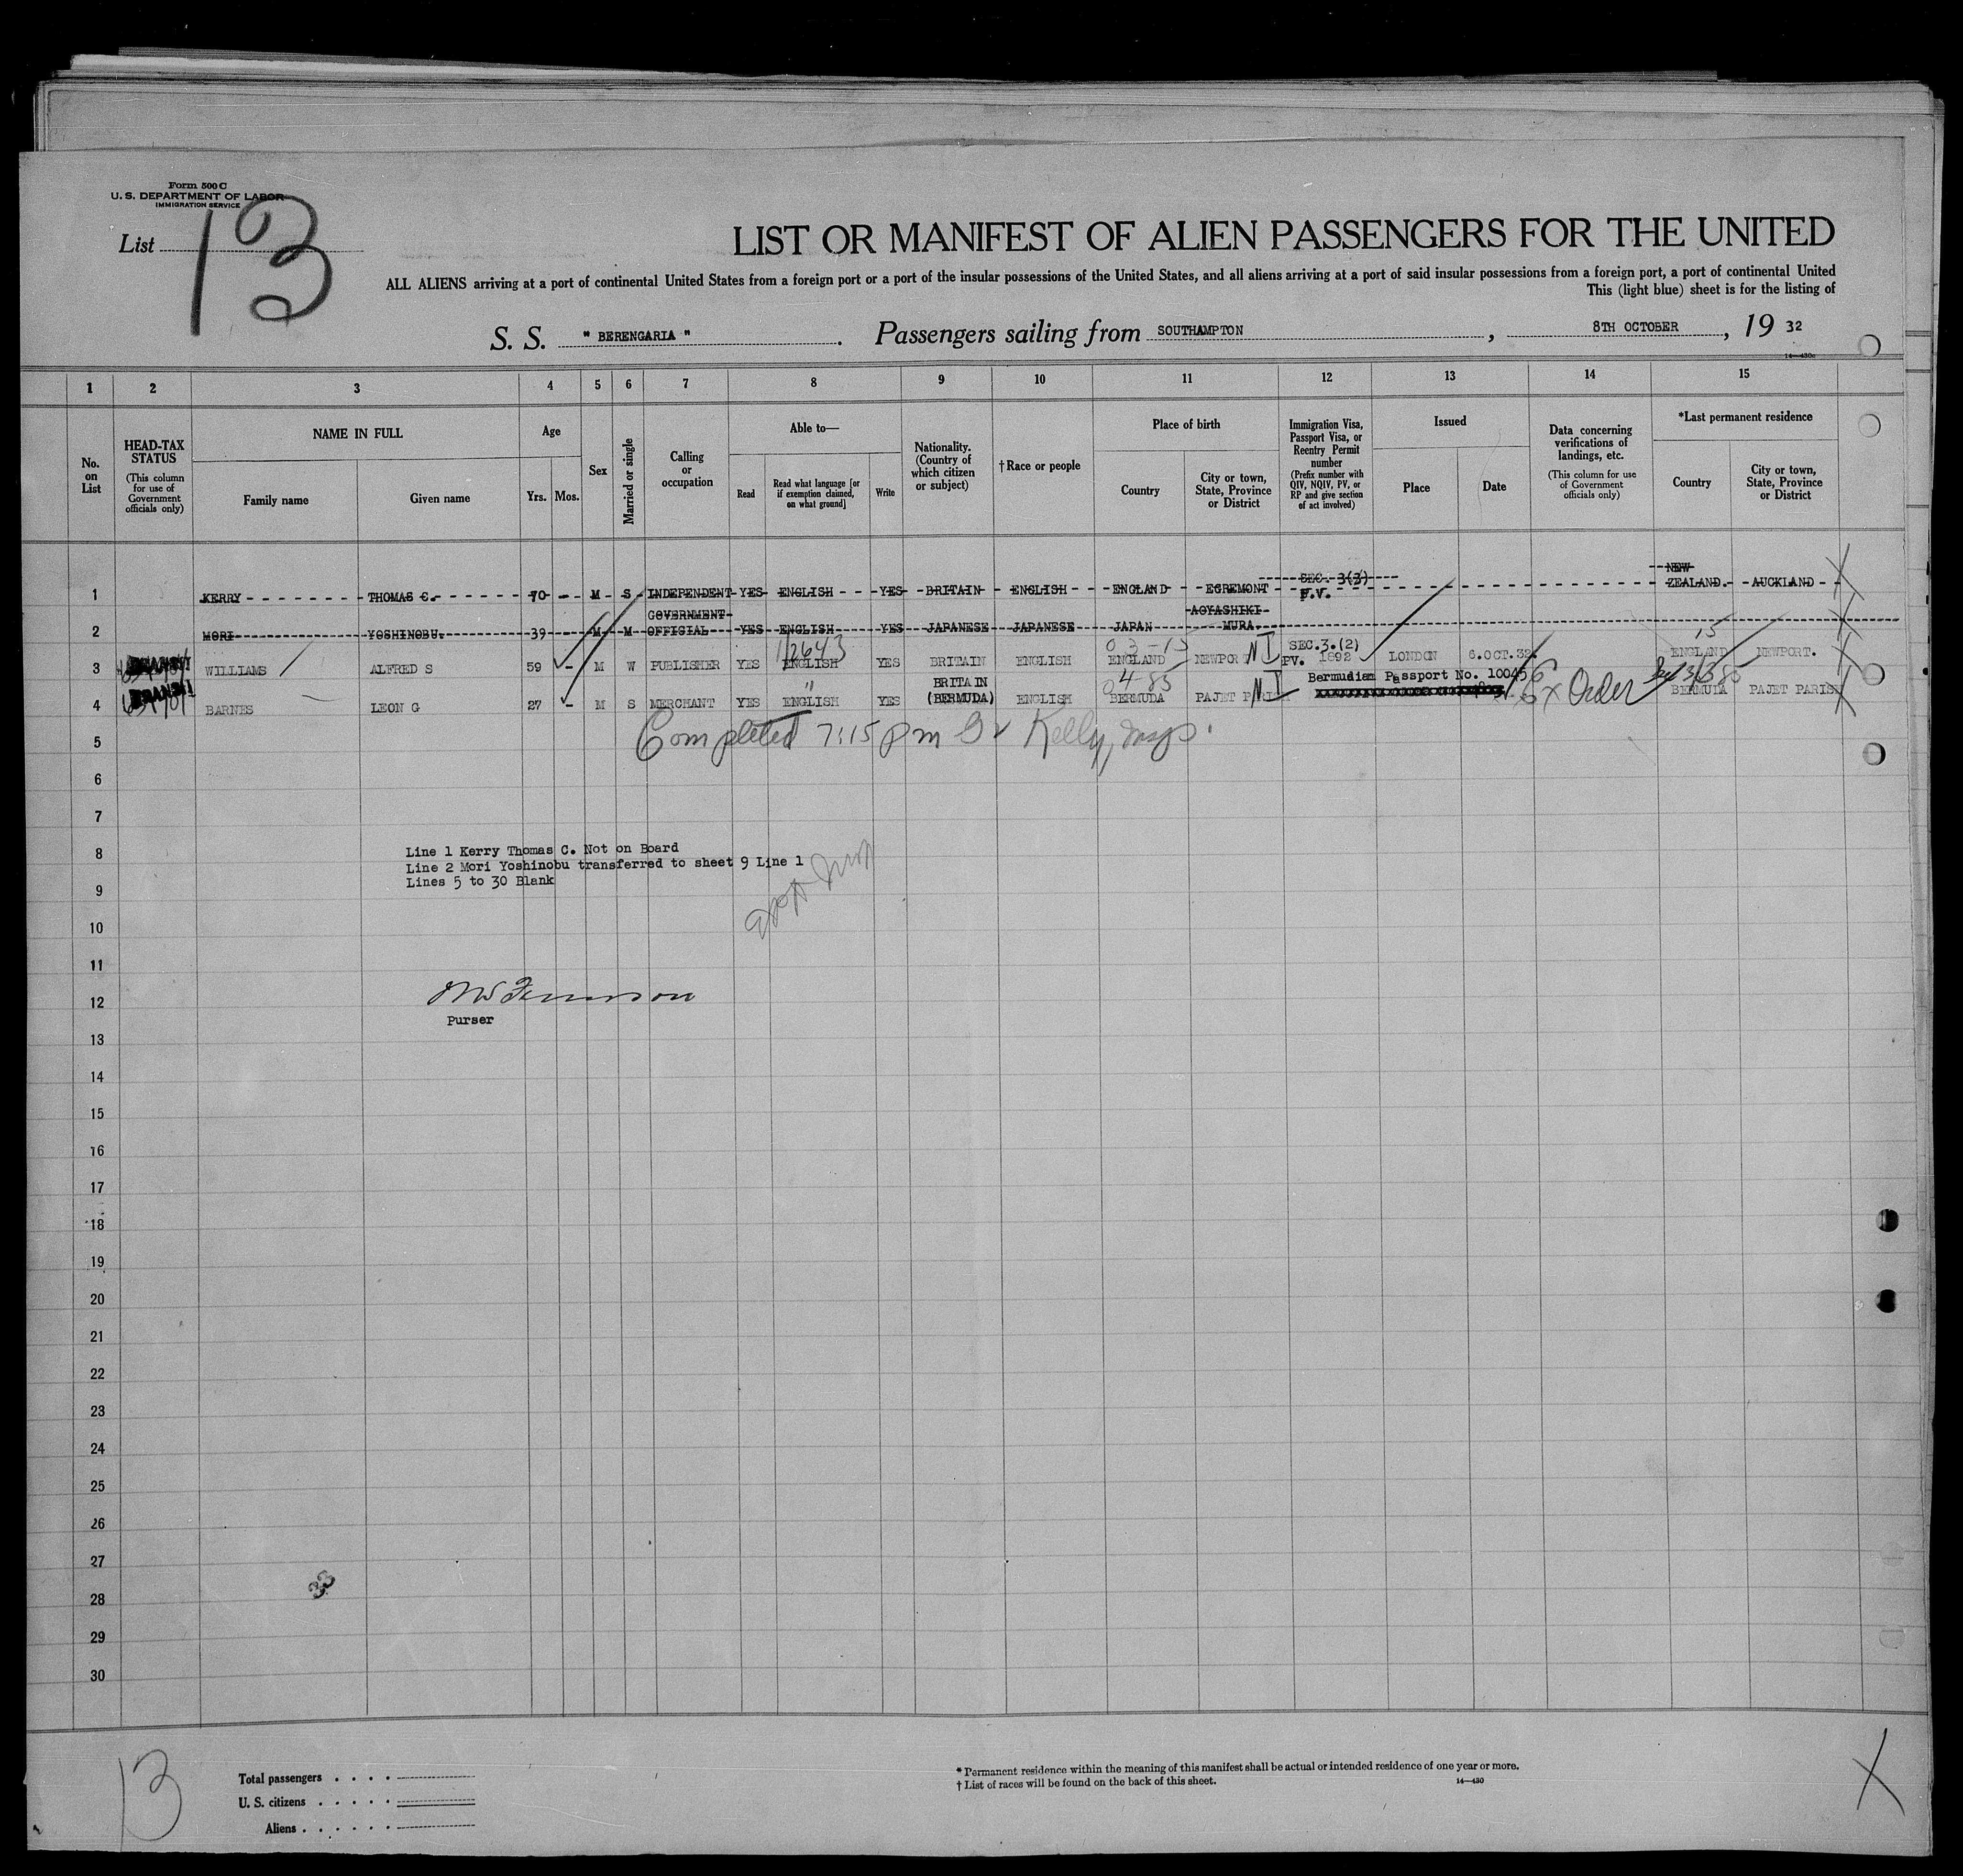 Form 500 C
U. S. DEPARTMENT OF LABOR
IMMIGRATION SERVICE
List 13
LIST OR MANIFEST OF ALIEN PASSENGERS FOR THE UNITED
ALL ALIENS arriving at a port of continental United States from a foreign port or a port of the insular possessions of the United States, and all aliens arriving at a port of said insular possessions from a foreign port, a port of continental United
This (light blue) sheet is for the listing of
S. S. " BERENGARIA ". Passengers sailing from SOUTHAMPTON, 8TH OCTOBER, 19 32
14—430c
1 2 3 4 5 6 7 8 9 10 11 12 13 14 15
No. on List
HEAD-TAX STATUS (This column for use of Government officials only)
NAME IN FULL
Family name
Given name
Age
Yrs. Mos.
Sex
Married or single
Calling or occupation
Able to—
Read
Read what language [or if exemption claimed, on what ground]
Write
Nationality. (Country of which citizen or subject)
†Race or people
Place of birth
Country
City or town, State, Province or District
Immigration Visa, Passport Visa, or Reentry Permit number (Prefix number with QIV, NQIV, PV, or RP and give section of act involved)
Issued
Place
Date
Data concerning verifications of landings, etc. (This column for use of Government officials only)
*Last permanent residence
Country
City or town, State, Province or District
1 KERRY THOMAS C. 70 - M S INDEPENDENT YES ENGLISH YES BRITAIN ENGLISH ENGLAND EGREMONT SEC. 3(3) P.V. NEW ZEALAND. AUCKLAND
2 MORI YOSHINOBU. 39 M M GOVERNMENT OFFICIAL YES ENGLISH YES JAPANESE JAPANESE JAPAN AOYASHIKI MURA.
12643 0 3-15 15
3 WILLIAMS ALFRED S 59 - M W PUBLISHER YES ENGLISH YES BRITAIN ENGLISH ENGLAND NEWPORT N I SEC.3.(2) PV. 1892 LONDON 6.OCT.32. ENGLAND NEWPORT.
4 85
4 BARNES LEON G 27 - M S MERCHANT YES ENGLISH YES BRITAIN (BERMUDA) ENGLISH BERMUDA PAJET PARI N I Bermudian Passport No. 10045 Order BERMUDA PAJET PARISH
5 Completed 7:15 pm Kelly, Insp.
6
7
8
Line 1 Kerry Thomas C. Not on Board
Line 2 Mori Yoshinobu transferred to sheet 9 Line 1
Lines 5 to 30 Blank
9
10
11
12
Purser
13
14
15
16
17
18
19
20
21
22
23
24
25
26
27
33
28
29
30
13
Total passengers
U. S. citizens
Aliens
* Permanent residence within the meaning of this manifest shall be actual or intended residence of one year or more.
† List of races will be found on the back of this sheet.
14—430
X